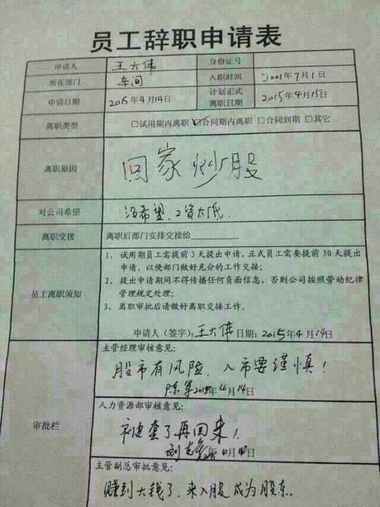 员工辞职申请表
申请人 王大伟 身份证号
所在部门 车间 入职时间 2001年7月1日
申请日期 2015年4月14日 计划正式离职日期 2015年4月15日
离职类型 □试用期内离职 ☑合同期内离职 □合同到期 □其它
离职原因 回家炒股
对公司希望 没希望,工资太低.
离职交接 离职后部门安排交接给
员工离职须知
1、试用期员工需提前3天提出申请,正式员工需要提前30天提出
申请,以便部门做好充分的工作交接;
2、提出申请期间不得传播任何负面信息,否则公司按照劳动纪律
管理规定处理;
3、离职审批后请做好离职交接工作。
申请人(签字):王大伟 日期:2015年4月14日
审批栏
主管经理审核意见:
股市有风险、入市要谨慎!
陈军 2015年4月14日
人力资源部审核意见:
被套了再回来!
4月14日
主管副总审批意见:
赚到大钱了,来入股成为股东.